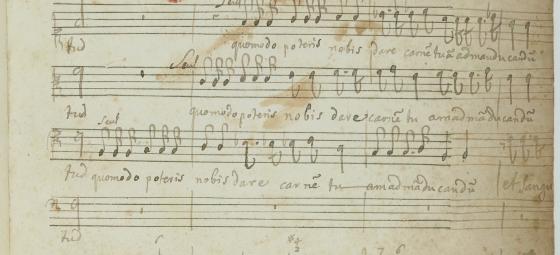 Seul
tud quomodo poteris nobis dare carnē tuā ad manducandū
Seul
tud quomodo poteris nobis dare carnē tu am ad māducandū
Seul
tud quomodo poteris nobis dare carnē tu am ad māducandū et sangu
tud
6
7 6